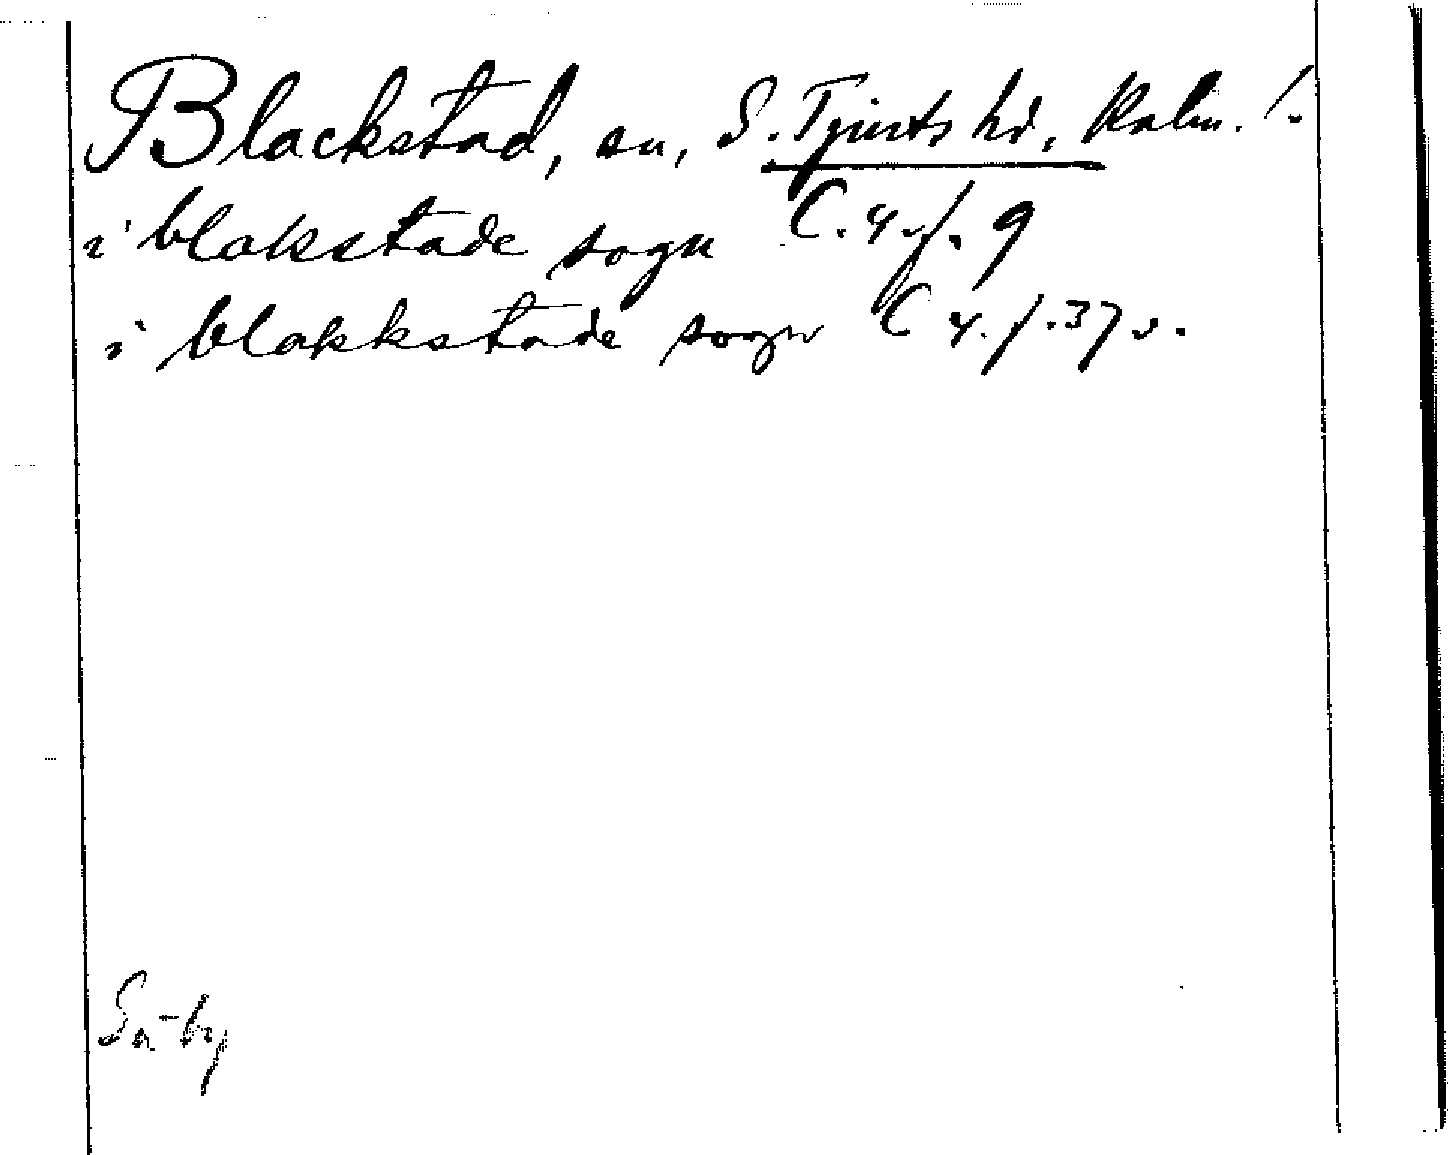 Blackstad, sn, S. Tjusts hd, Kalm. l.
i blakstade sogn C. 4. f. 9
i blakkstade sogn C 4. f. 37 v.
Sn-by